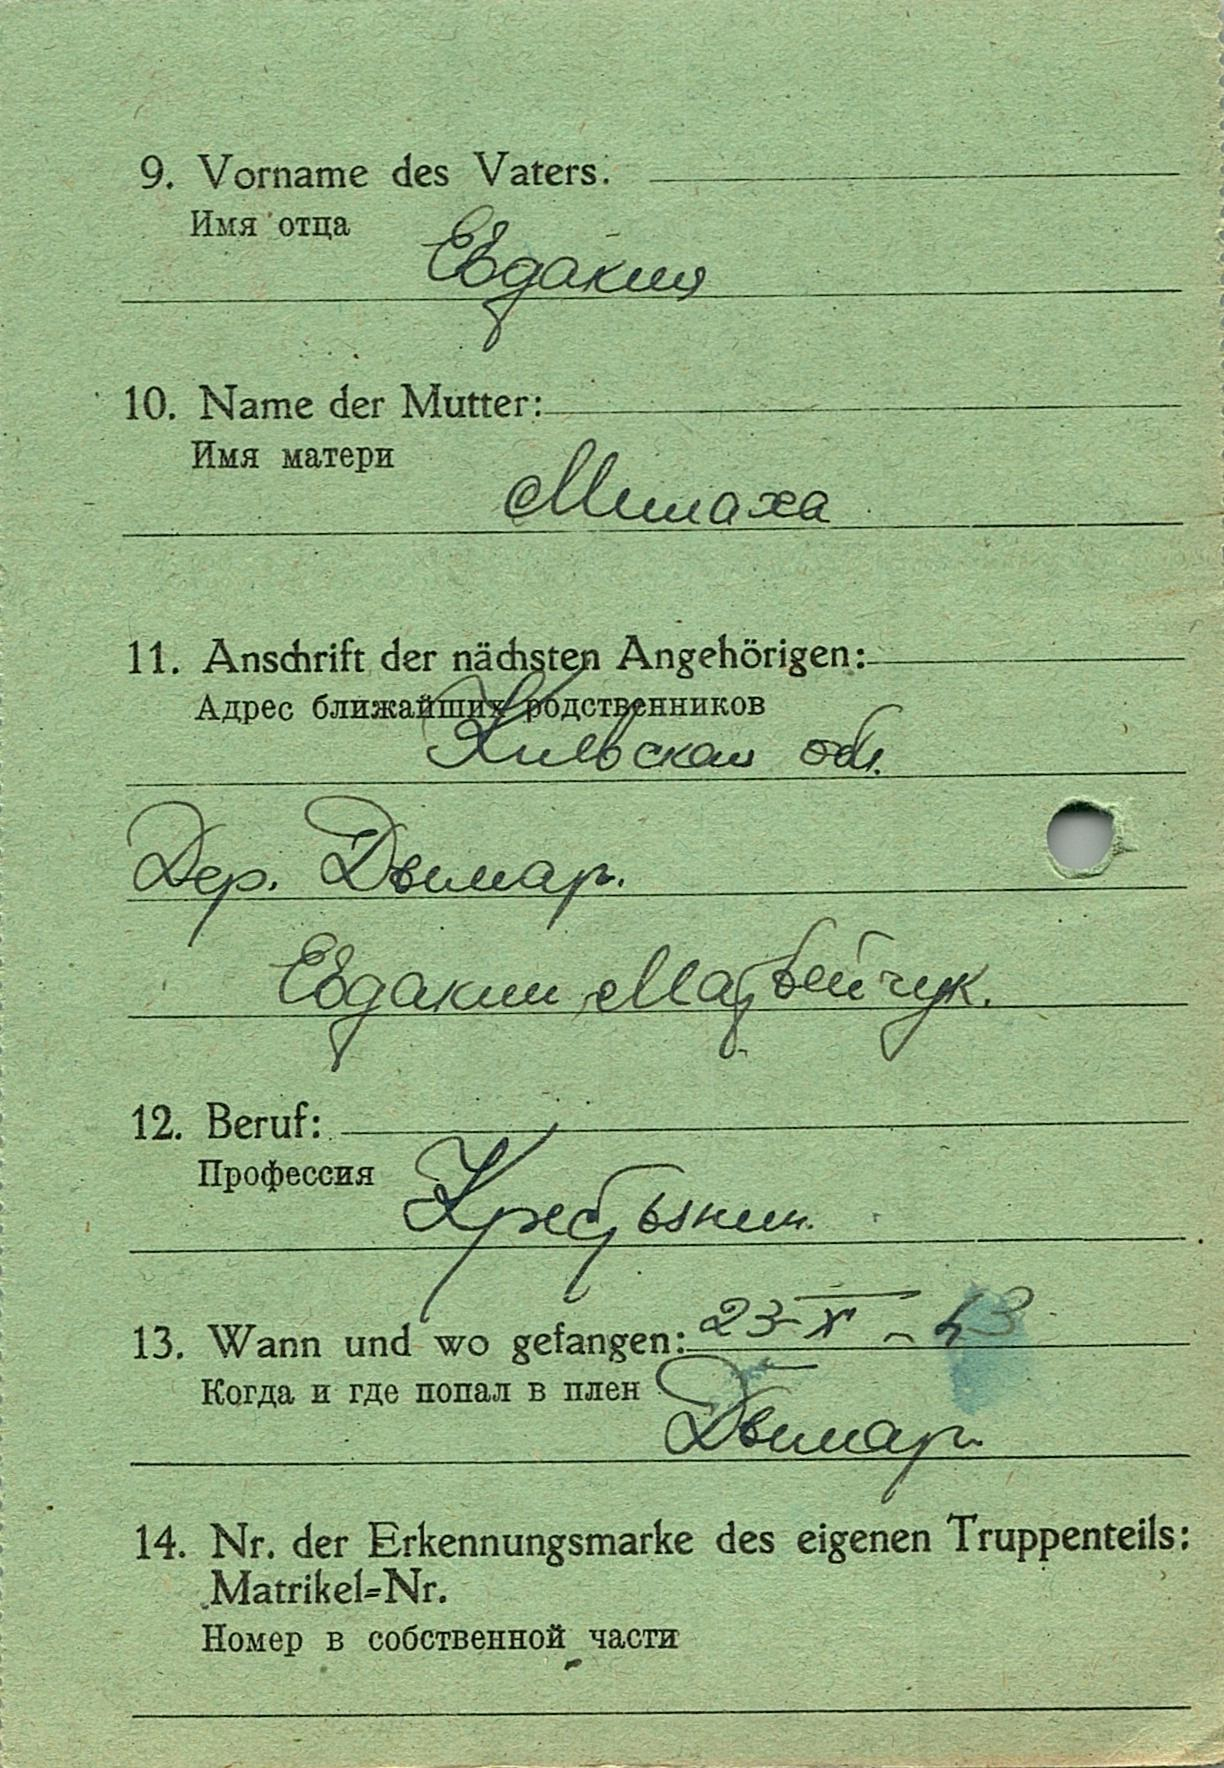 9. Vorname des Vaters.
Имя отца
Евдакия
10. Name der Mutter:
Имя матери
Милаха
11. Anschrift der nächsten Angehörigen:
Адрес ближайших родственников
Киевская обл.
Дер. Дымар.
Евдакии Матвейчук.
12. Beruf:
Профессия
Крестьянин.
13. Wann und wo gefangen: 23-X-43
Когда и где попал в плен
Дымар.
14. Nr. der Erkennungsmarke des eigenen Truppenteils:
Matrikel-Nr.
Номер в собственной части